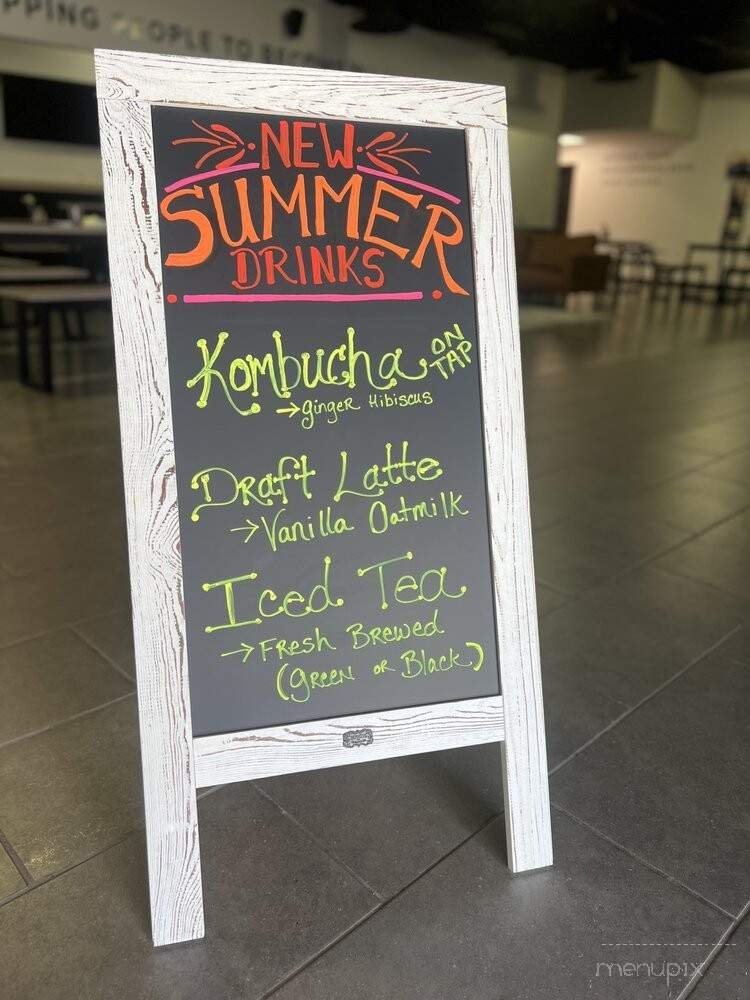 PPING PEOPLE TO BECOME
NEW
SUMMER
DRINKS
Kombucha ON TAP
→ Ginger Hibiscus
Draft Latte
→ Vanilla Oatmilk
Iced Tea
→ Fresh Brewed
(Green or Black)
menupix